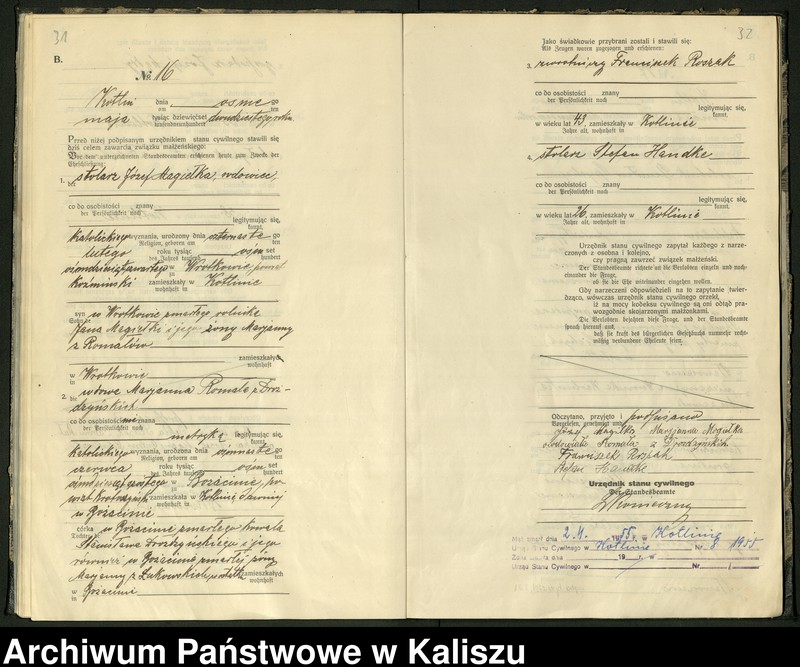 31
B.
№ 16
Kotlin dnia ósmego
am ten
maja tysiąc dziewięćset dwudziestego roku
tausendneunhundert
Przed niżej podpisanym urzędnikiem stanu cywilnego stawili się
dziś celem zawarcia związku małżeńskiego:
Vor dem unterzeichneten Standesbeamten erschienen heute zum Zweck der
Eheschließung:
1. stolarz Józef Magiełka, wdowiec
der
co do osobistości znany
der Persönlichkeit nach
legitymując się,
kannt,
katolickiego wyznania, urodzony dnia czternastego
Religion, geboren am ten
lutego roku tysiąc ośmset
des Jahres tausend hundert
ośmdziesiąt czwartego w Wrotkowie, powiat
zu
Koźmiński zamieszkały w Kotlinie
wohnhaft in
syn w Wrotkowie zmarłego rolnika
Sohn des
Jana Magiełki i jego żony Marjanny
z Romałów
zamieszkałych
wohnhaft
w Wrotkowie
in
2. wdowa Marjanna Romała z Droż-
die
dzyńskich
co do osobistości nie znana
der Persönlichkeit nach
metryką legitymując się,
kannt,
katolickiego wyznania, urodzona dnia ósmnastego
Religion, geboren am ten
czerwca roku tysiąc ośmset
des Jahres tausend hundert
w Bożacinie, po-
zu
wiat Krotoszyn zamieszkała w Kotlinie
wohnhaft in
córka w Bożacinie zmarłego kowala
Tochter des
Stanisława Drożdżyńskiego i jego
również w Bożacinie zmarłej żony
Marjanny z Łukowskich, zamieszkałych
wohnhaft
w Bożacinie
in
32
Jako świadkowie przybrani zostali i stawili się:
Als Zeugen waren zugezogen und erschienen:
3. Franciszek Roszak
co do osobistości znany
der Persönlichkeit nach
legitymując się,
kannt,
w wieku lat 43, zamieszkały w Kotlinie
Jahre alt, wohnhaft in
4. stolarz Stefan Handke
co do osobistości znany
der Persönlichkeit nach
legitymując się,
kannt,
w wieku lat 26, zamieszkały w Kotlinie
Jahre alt, wohnhaft in
Urzędnik stanu cywilnego zapytał każdego z narze-
czonych z osobna i kolejno,
czy pragną zawrzeć związek małżeński.
Der Standesbeamte richtete an die Verlobten einzeln und nach-
einander die Frage,
ob sie die Ehe miteinander eingehen wollen.
Gdy narzeczeni odpowiedzieli na to zapytanie twier-
dząco, wówczas urzędnik stanu cywilnego orzekł,
iż na mocy kodeksu cywilnego są oni odtąd pra-
wozgodnie skojarzonymi małżonkami.
Die Verlobten bejahten diese Frage, und der Standesbeamte
sprach hierauf aus,
daß sie kraft des bürgerlichen Gesetzbuchs nunmehr recht-
mäßig verbundene Eheleute seien.
Odczytano, przyjęto i podpisano
Vorgelesen, genehmigt und
Józef Magiełka Marjanna Magiełka
owdowiała Romała z Drożdżyńskich
Franciszek Roszak
Stefan Handke
Urzędnik stanu cywilnego
Der Standesbeamte
Konieczny
Mąż zmarł dnia 2.XI. 1955 r. w Kotlinie
Urząd Stanu Cywilnego w Kotlinie Nr. 8 / 1955
Żona zmarła dnia 19 r. w
Urząd Stanu Cywilnego w Nr. /
Archiwum Państwowe w Kaliszu